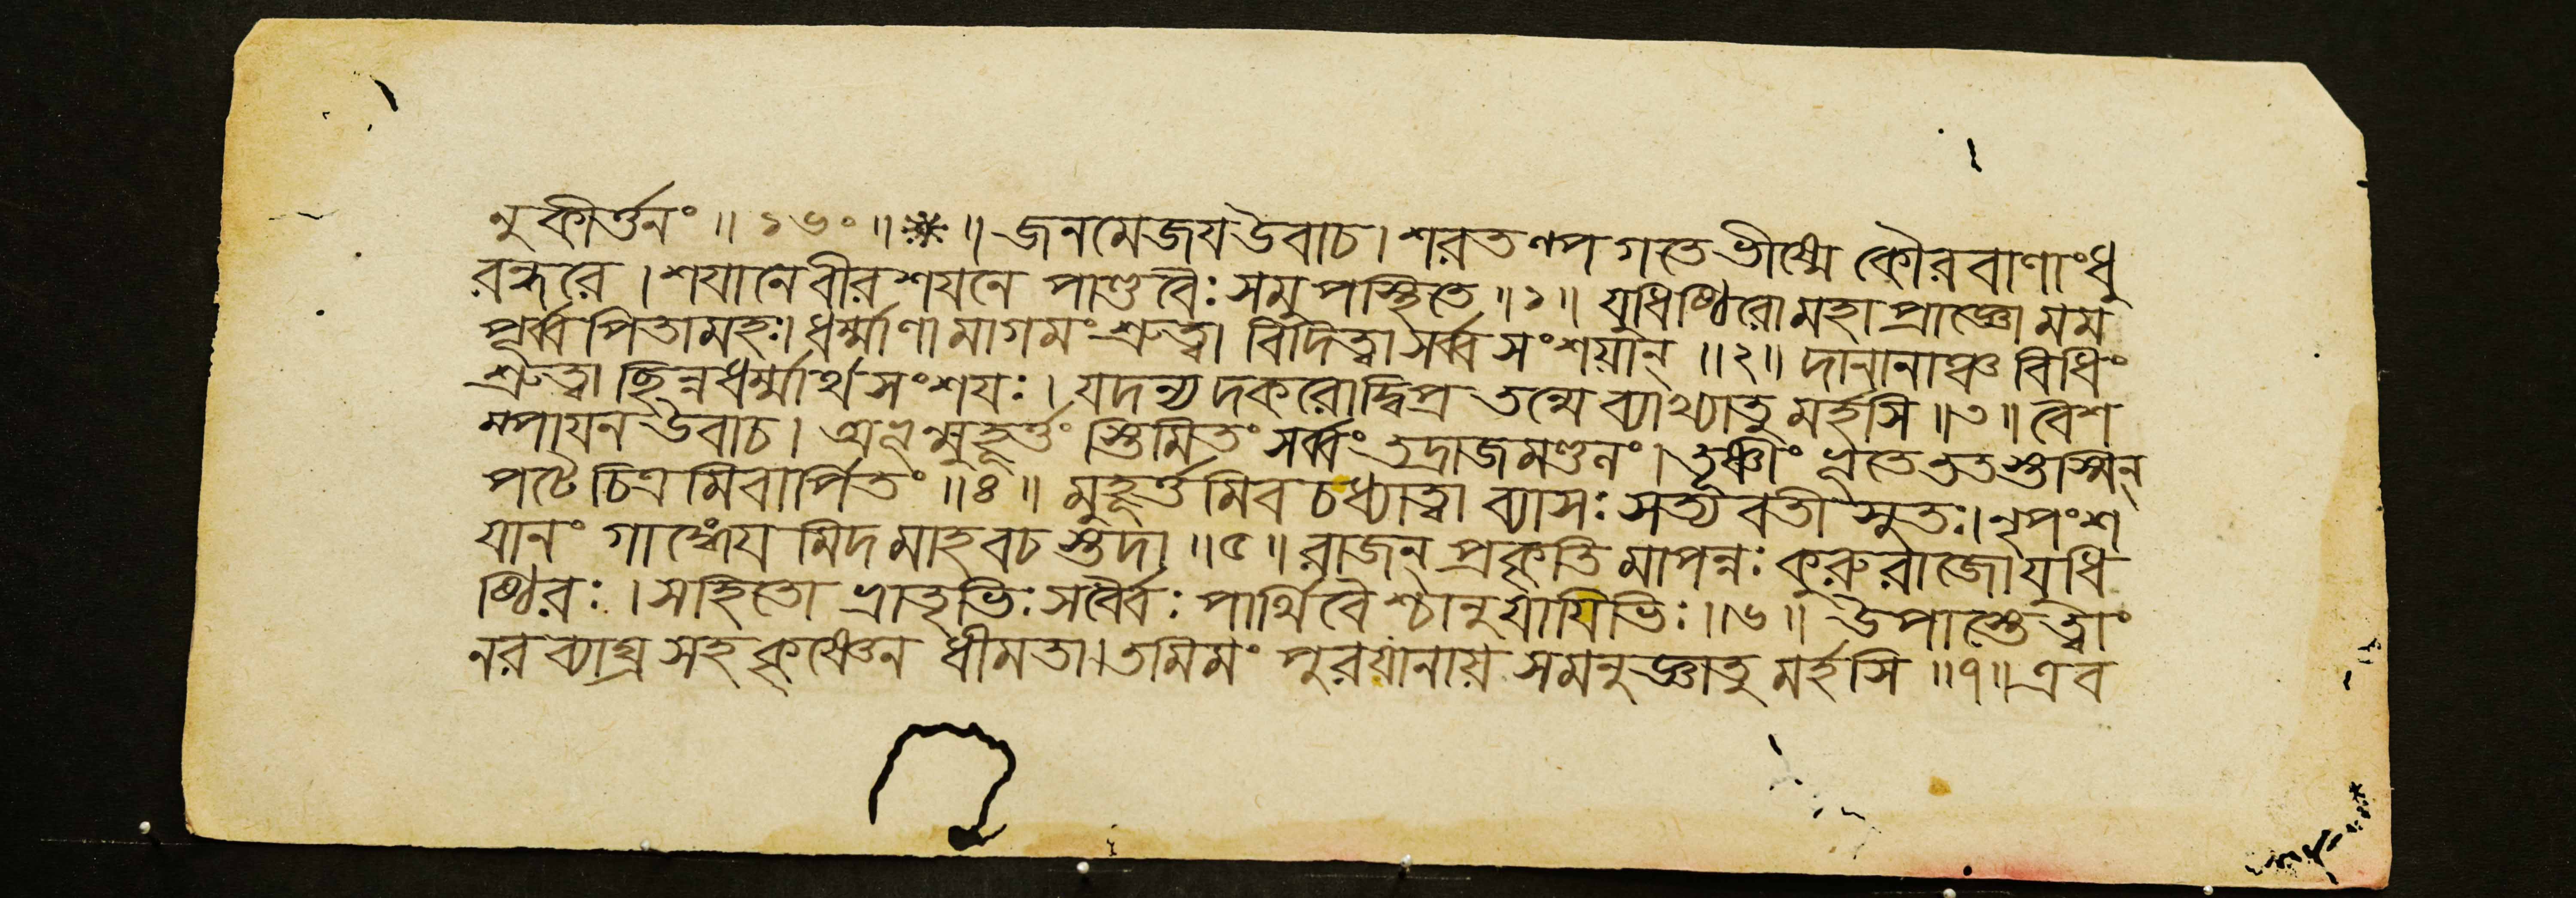 নুকীর্ত্তনং ॥ ১৬০ ॥ ※ ॥ জনমেজয উবাচ । শরতল্পগতে ভীষ্মে কৌরবাণাং ধু
রন্ধরে । শযানে বীরশযনে পাণ্ডবৈঃ সমুপস্থিতে ॥ ১ ॥ যুধিষ্ঠিরো মহাপ্রাজ্ঞো মম
পূর্ব্বপিতামহঃ । ধর্ম্মাণামাগমং শ্রুত্বা বিদিত্বা সর্ব্বসংশয়ান্ ॥ ২ ॥ দানানাঞ্চ বিধিং
শ্রুত্বা ছিন্নধর্ম্মার্থসংশযঃ । যদন্যদকরোদ্বিপ্র তন্মে ব্যাখ্যাতুমর্হসি ॥ ৩ ॥ বৈশ
ম্পাযন উবাচ । অভূন্মুহূর্ত্তং স্তিমিতং সর্ব্বং তদ্রাজমণ্ডলং । তূষ্ণীং ভূতে ততস্তস্মিন্
পটে চিত্রমিবার্পিতং ॥ ৪ ॥ মুহূর্ত্তমিব চ ধ্যাত্বা ব্যাসঃ সত্যবতীসুতঃ । নৃপং শ
যানং গাঙ্গেযমিদমাহ বচস্তদা ॥ ৫ ॥ রাজন্ প্রকৃতিমাপন্নঃ কুরুরাজো যুধি
ষ্ঠিরঃ । সহিতো ভ্রাতৃভিঃ সর্বৈবঃ পার্থিবৈশ্চানুযাযিভিঃ ॥ ৬ ॥ উপাস্তে ত্বাং
নরব্যাঘ্র সহ কৃষ্ণেন ধীমতা । তমিমং পুরয়ানায় সমনুজ্ঞাতুমর্হসি ॥ ৭ ॥ এব